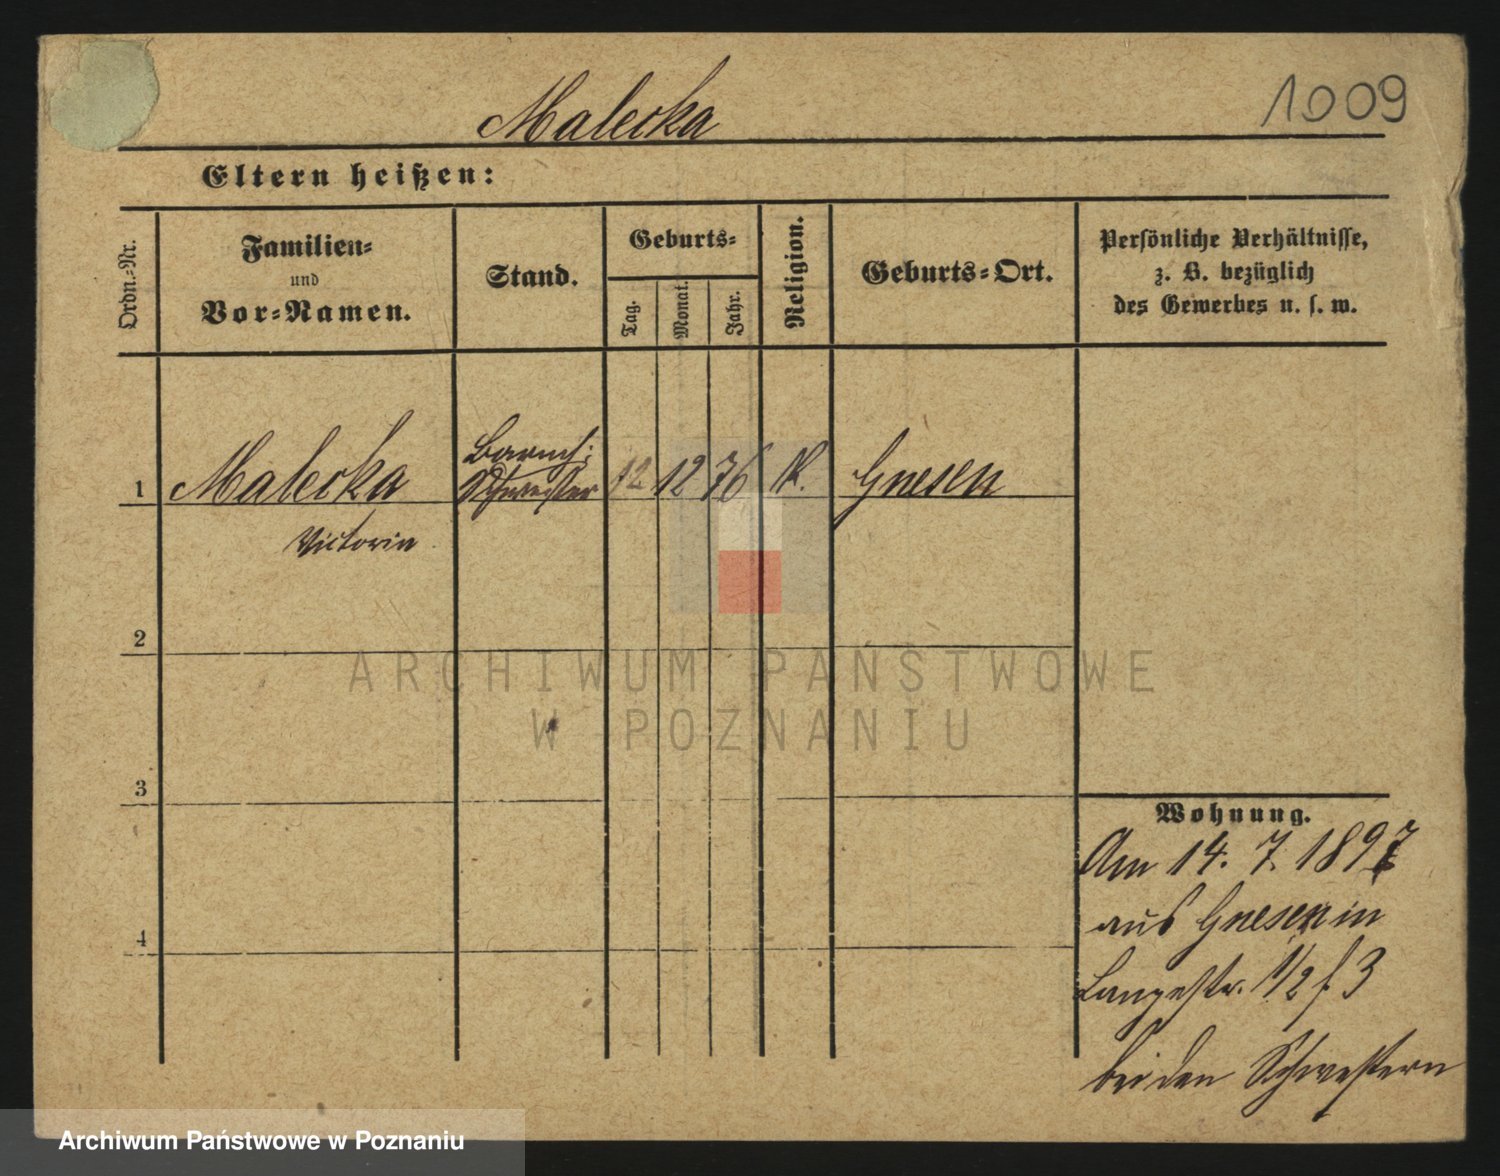 Malecka
1009
Eltern heißen:
Ordn.-Nr.
Familien-
und
Vor-Namen.
Stand.
Geburts-
Tag.
Monat.
Jahr.
Religion.
Geburts-Ort.
Persönliche Verhältnisse,
z. B. bezüglich
des Gewerbes u. s. w.
1 Malecka
Schwester
12 12 76 K. Gnesen
Victoria
2
3
4
ARCHIWUM PAŃSTWOWE
W POZNANIU
Wohnung.
Am 14. 7. 1897
aus Gnesen in
Langestr. 1/2 f 3
bei den Schwestern
Archiwum Państwowe w Poznaniu